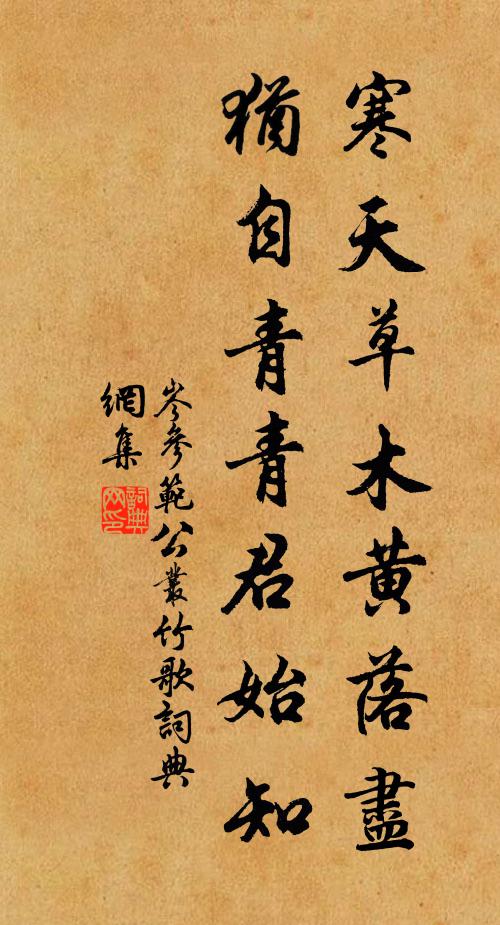 寒天草木黄落盡
猶自青青君始知
岑參範公叢竹歌詞典
網集
詞典
网印